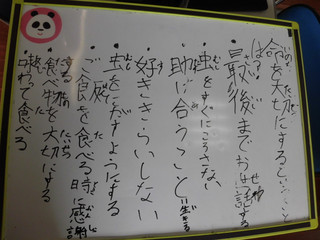 命を大切にするということは？
・最後までお世話する
・虫をすぐにころさない
・助け合うこと
・好ききらいしない
・虫をにがすようにする
・ご飯を食べる時に感謝する
・食べ物を大切にする
・味わって食べる